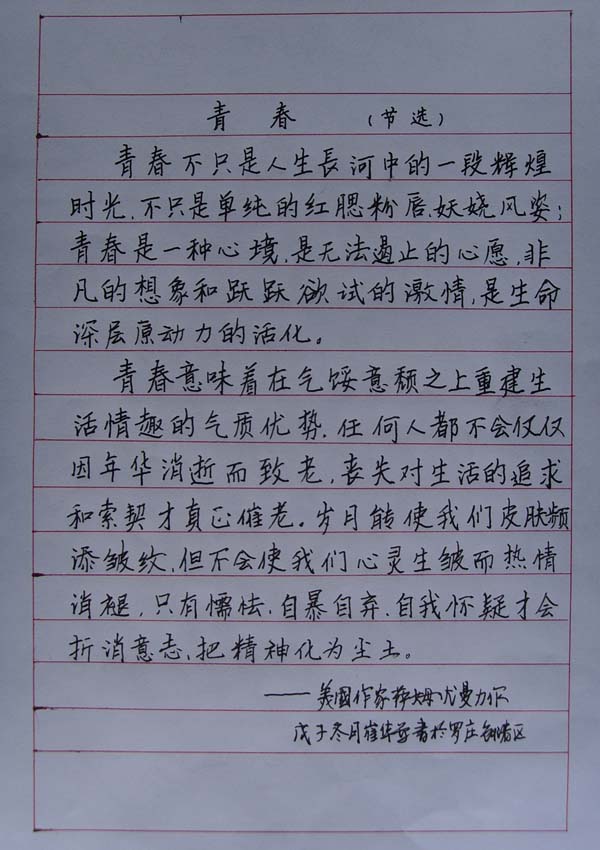 青春 （节选）
青春不只是人生長河中的一段辉煌
时光,不只是单纯的红腮粉唇、妖娆风姿；
青春是一种心境,是无法遏止的心愿,非
凡的想象和跃跃欲试的激情,是生命
深层原动力的活化。
青春意味着在气馁意颓之上重建生
活情趣的气质优势.任何人都不会仅仅
因年华消逝而致老,丧失对生活的追求
和索契才真正催老。岁月能使我们皮肤频
添皱纹,但不会使我们心灵生皱而热情
消褪,只有懦怯、自暴自弃、自我怀疑才会
折消意志,把精神化为尘土。
——美國作家 尤曼
戊子冬月崔华 書於罗庄 区